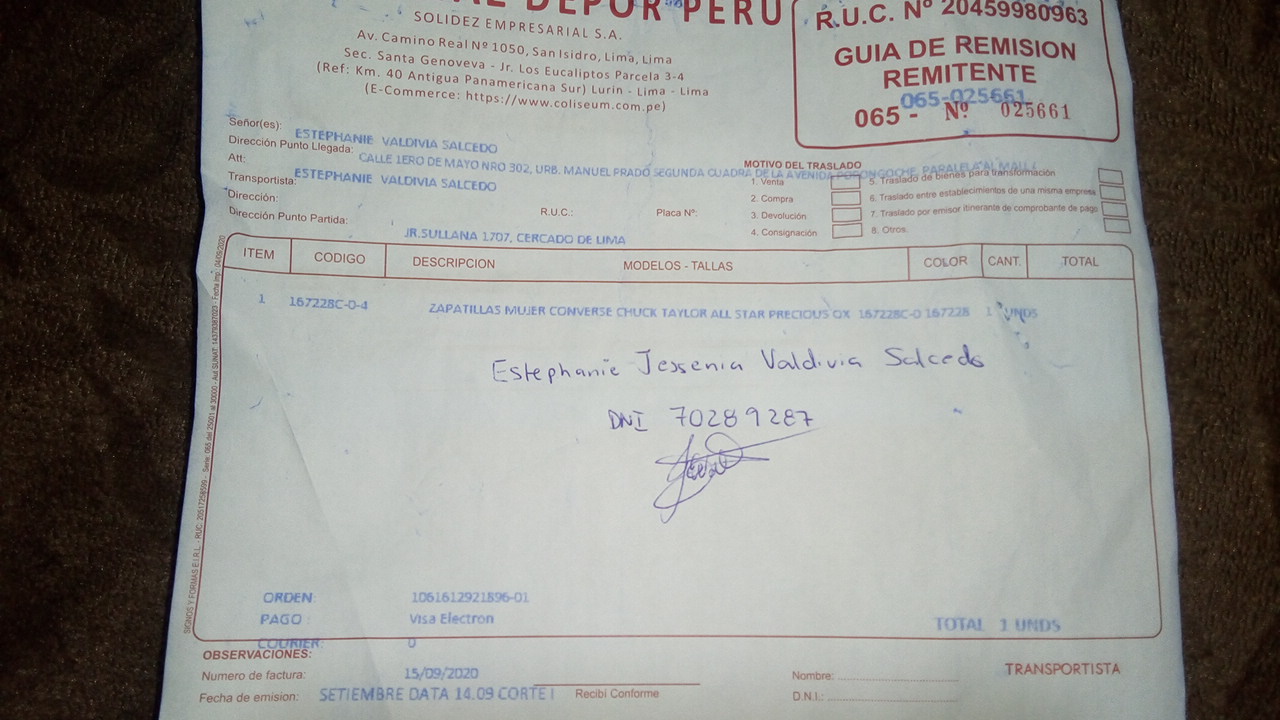 DEPOR PERU
SOLIDEZ EMPRESARIAL S.A.
Av. Camino Real Nº 1050, San Isidro, Lima, Lima
Sec. Santa Genoveva - Jr. Los Eucaliptos Parcela 3-4
(Ref: Km. 40 Antigua Panamericana Sur) Lurin - Lima - Lima
(E-Commerce: https://www.coliseum.com.pe)
R.U.C. Nº 20459980963
GUIA DE REMISION
REMITENTE
065-025661
065 - Nº 025661
Señor(es): ESTEPHANIE VALDIVIA SALCEDO
Dirección Punto Llegada: CALLE 1ERO DE MAYO NRO 302, URB. MANUEL PRADO SEGUNDA CUADRA DE LA AVENIDA PORONGOCHE, PARALELA AL MALL
Att: ESTEPHANIE VALDIVIA SALCEDO
Transportista:
Dirección: R.U.C.: Placa Nº:
Dirección Punto Partida: JR.SULLANA 1707, CERCADO DE LIMA
MOTIVO DEL TRASLADO
1. Venta
2. Compra
3. Devolución
4. Consignación
5. Traslado de bienes para transformación
6. Traslado entre establecimientos de una misma empresa
7. Traslado por emisor itinerante de comprobante de pago
8. Otros.
ITEM CODIGO DESCRIPCION MODELOS - TALLAS COLOR CANT. TOTAL
1 167228C-0-4 ZAPATILLAS MUJER CONVERSE CHUCK TAYLOR ALL STAR PRECIOUS OX 167228C-0 167228 1 UNDS
Estephanie Jessenia Valdivia Salcedo
DNI 70289287
ORDEN: 1061612921896-01
PAGO : Visa Electron
TOTAL 1 UNDS
COURIER: 0
OBSERVACIONES:
Numero de factura: 15/09/2020
Fecha de emision: SETIEMBRE DATA 14.09 CORTE I
Recibi Conforme
Nombre:
D.N.I.:
TRANSPORTISTA